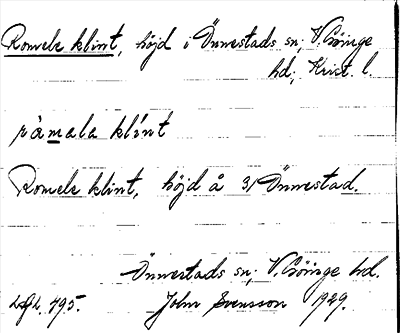 Romele klint, höjd i Önnestads sn; V. Göinge
hd; Krist. l.
ràmala klínt
Romele klint, höjd å 3/ Önnestad.
Önnestads sn; V. Göinge hd.
Lgh. 495. John Svensson 1929.